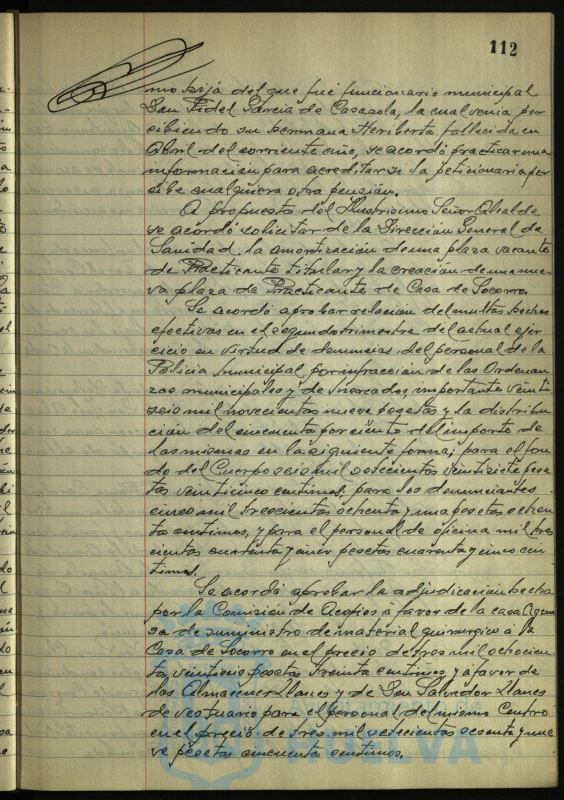 112
mo hija del que fué funcionario municipal
Don Fidel Garcia de Casasola, la cual venia per
cibiendo su hermana Heriberta fallecida en
Abril del corriente año, se acordó practicar una
información para acreditar si la peticionaria per
cibe cualquiera otra pensión.
A propuesta del Ilustrisimo Señor Alcalde
se acordó solicitar de la Dirección General de
Sanidad la amortización de una plaza vacante
de Practicante titular y la creación de una nue-
va plaza de Practicante de Casa de Socorro.
Se acordó aprobar relacion del multas hechas
efectivas en el segundo trimestre del actual ejer
cicio en virtud de denuncias del personal de la
Policia municipal por infracción de las Ordenan
zas municipales y de Mercados, importante veinti
seis mil novecientas nueve pesetas y la distribu
ción del cincuenta por ciento del importe de
las mismas en la siguiente forma; para el fon
do del Cuerpo seis mil setecientas veintisiete pese
tas veinticinco centimos, para los denunciantes
cinco mil trescientas ochenta y una pesetas ochen
ta centimos, y para el personal de oficina mil tres
cientas cuarenta y cinco pesetas cuarenta y cinco cen
timos.
Se acordó aprobar la adjudicación hecha
por la Comisión de Acopios a favor de la casa
de suministro de material quirurgico a la
Casa de Socorro en el precio de tres mil ochocien
tas veintiseis pesetas treinta centimos y a favor de
los Almacenes Llanes y de Don Salvador Llanes
de vestuario para el personal del mismo Centro
en el precio de tres mil setecientas sesenta y nue
ve pesetas cincuenta centimos.